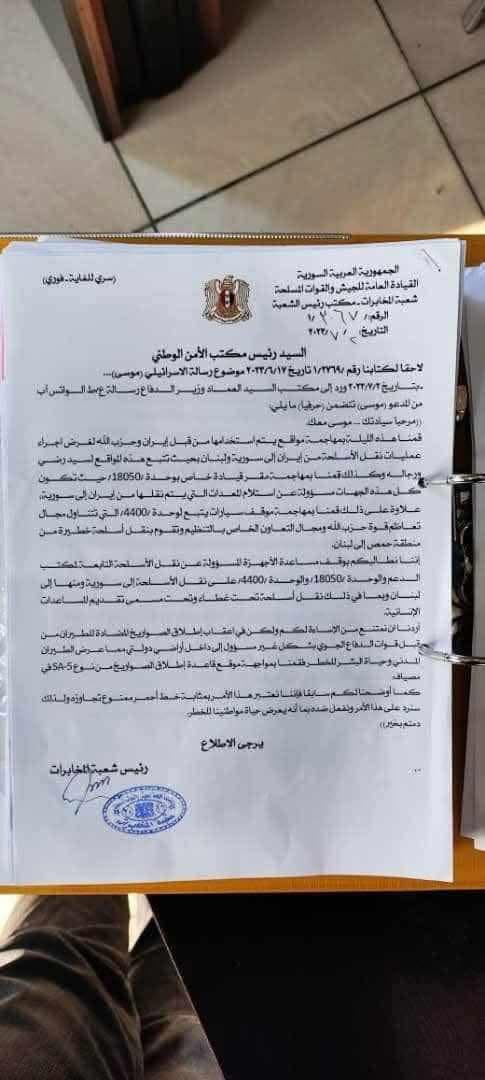 الجمهورية العربية السورية
القيادة العامة للجيش والقوات المسلحة
شعبة المخابرات - مكتب رئيس الشعبة
الرقم/ ٣٦٧ /١
التاريخ: ٢ / ٧ /٢٠٢٣
(سري للغاية - فوري)
السيد رئيس مكتب الأمن الوطني
لاحقا لكتابنا رقم /١/٢٧٦٩ تاريخ ٢٠٢٣/٦/١٧ موضوع رسالة الاسرائيلي (موسى)...
ـ بتاريخ ٢٠٢٣/٧/٢ ورد إلى مكتب السيد العماد وزير الدفاع رسالة ع/ط الواتس آب
من المدعو (موسى) تتضمن (حرفيا) ما يلي:
((مرحبا سيادتك ... موسى معك.
قمنا هذه الليلة بمهاجمة مواقع يتم استخدامها من قبل إيران وحزب الله لغرض اجراء
عمليات نقل الأسلحة من إيران إلى سورية ولبنان بحيث تتبع هذه المواقع لسيد رضي
ورجاله وكذلك قمنا بمهاجمة مقر قيادة خاص بوحدة /18050/ حيث تكون
كل هذه الجهات مسؤولة عن استلام المعدات التي يتم نقلها من إيران إلى سورية،
علاوة على ذلك قمنا بمهاجمة موقف سيارات يتبع لوحدة /4400/ التي تتناول مجال
تعاظم قوة حزب الله ومجال التعاون الخاص بالتنظيم وتقوم بنقل أسلحة خطيرة من
منطقة حمص إلى لبنان.
إننا نطالبكم بوقف مساعدة الأجهزة المسؤولة عن نقل الأسلحة التابعة لمكتب
الدعم والوحدة /18050/ والوحدة /4400/ على نقل الأسلحة إلى سورية ومنها إلى
لبنان وبما في ذلك نقل أسلحة تحت غطاء وتحت مسمى تقديم المساعدات
الإنسانية.
أردنا ان نمتنع من الإساءة لكم ولكن في اعقاب إطلاق الصواريخ المضادة للطيران من
قبل قوات الدفاع الجوي بشكل غير مسؤول إلى داخل أراضي دولتي مما عرض الطيران
المدني وحياة البشر للخطر فقمنا بمواجهة موقع قاعدة إطلاق الصواريخ من نوع SA-5 في
مصياف.
كما أوضحنا لكم سابقا فإننا نعتبر هذا الأمر بمثابة خط أحمر ممنوع تجاوزه ولذلك
سنرد على هذا الأمر ونفعل ضده بما أنه يعرض حياة مواطنينا للخطر.
دمتم بخير))
يرجى الاطلاع
رئيس شعبة المخابرات